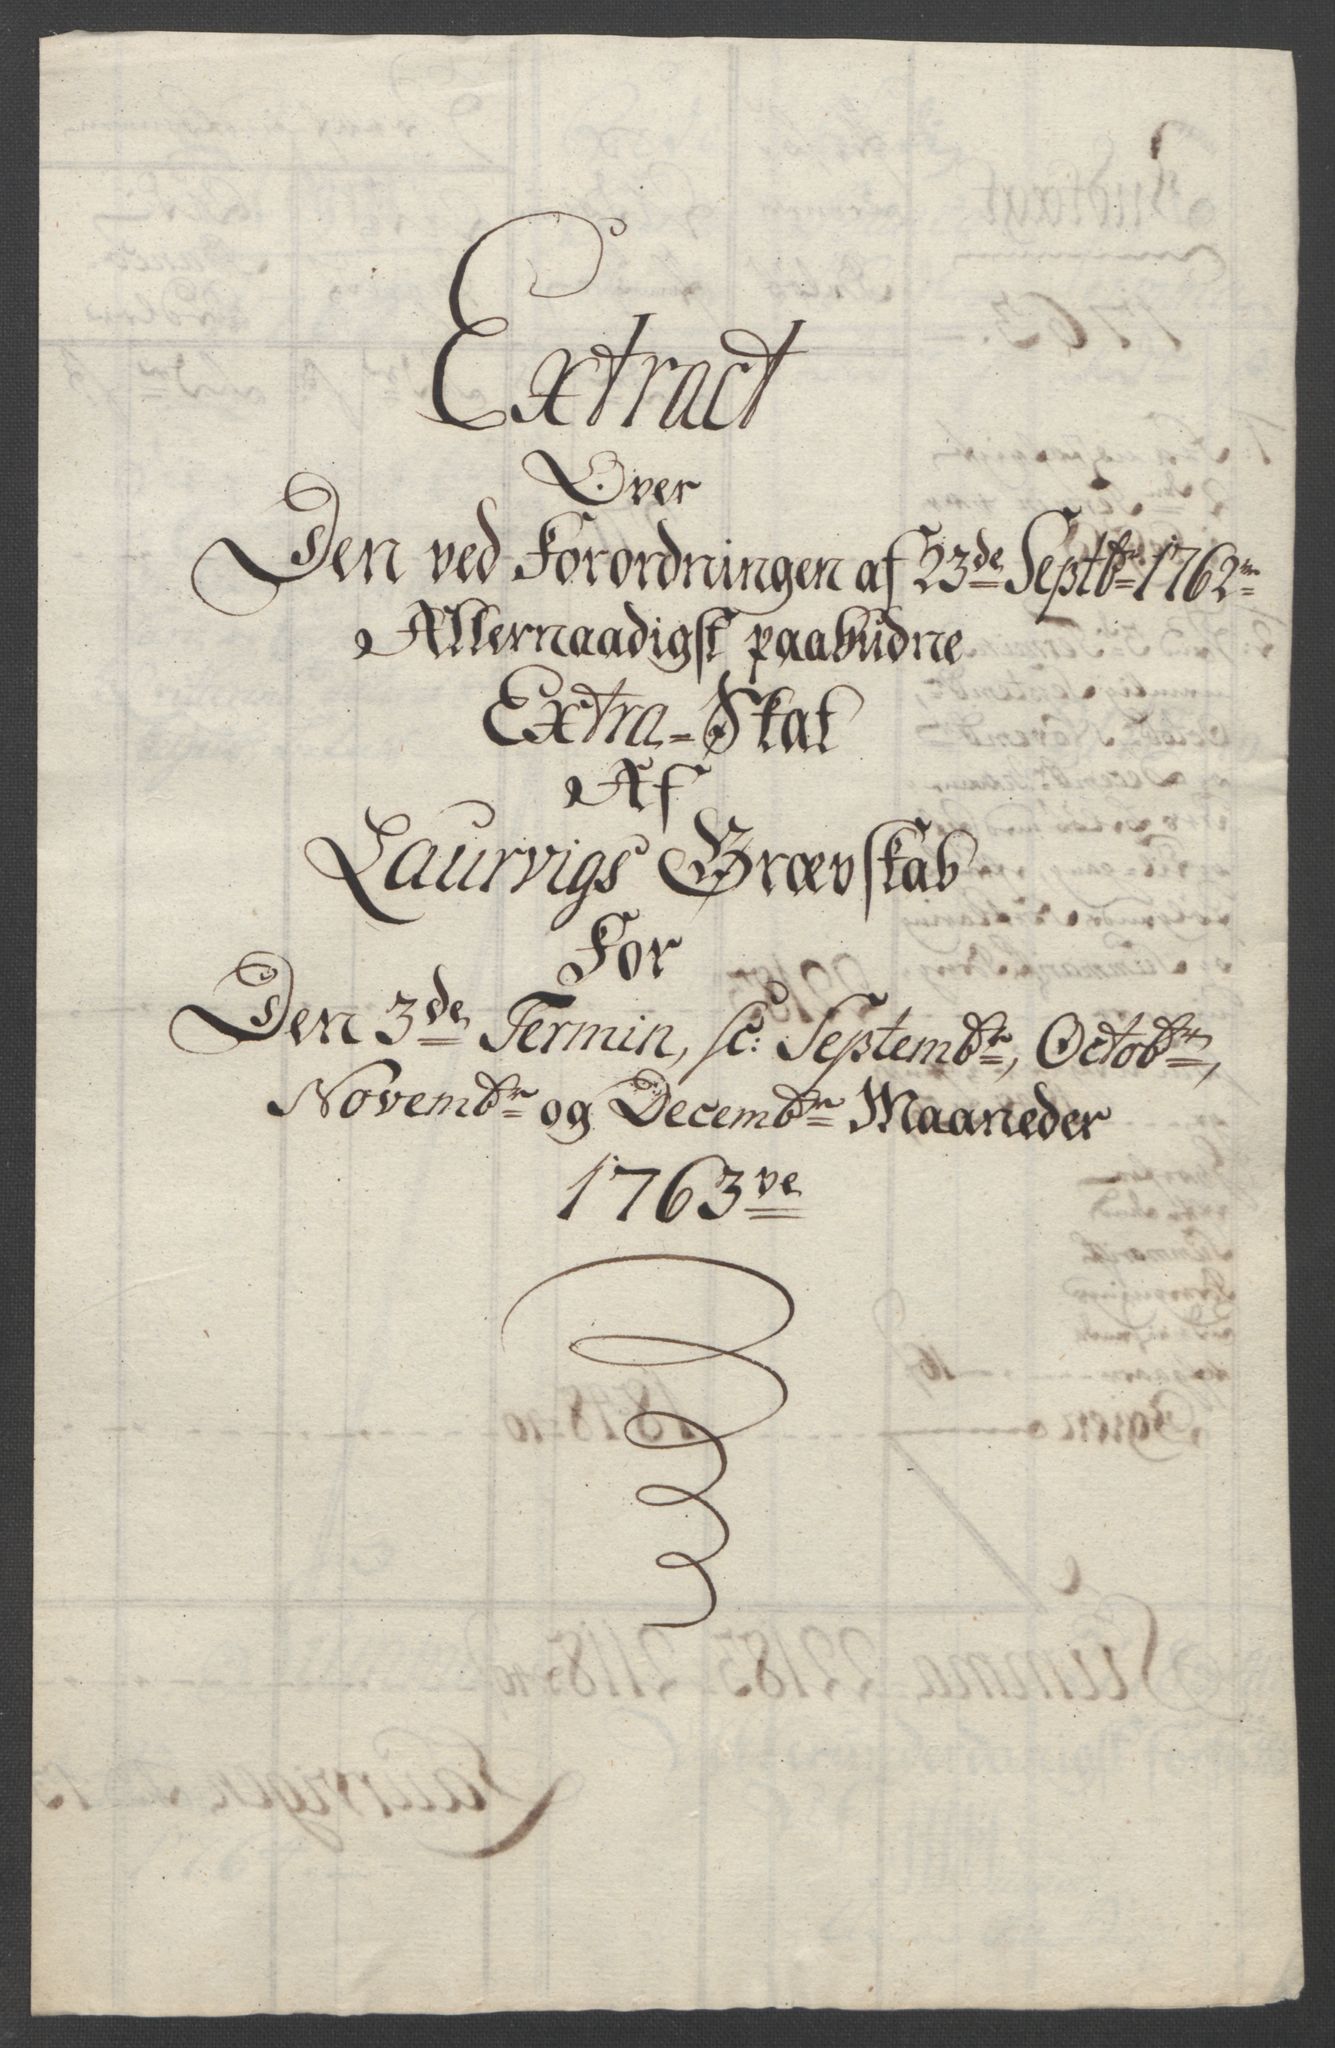 Extract
Over
Den ved Forordningen af 23de Septbr 1762
Allernaadigst paabudne
Extra-Skat
Af
Laurvigs Grævskab
For
Den 3de Termin, sc: Septembr, Octobr,
Novembr og Decembr Maaneder
1763ve